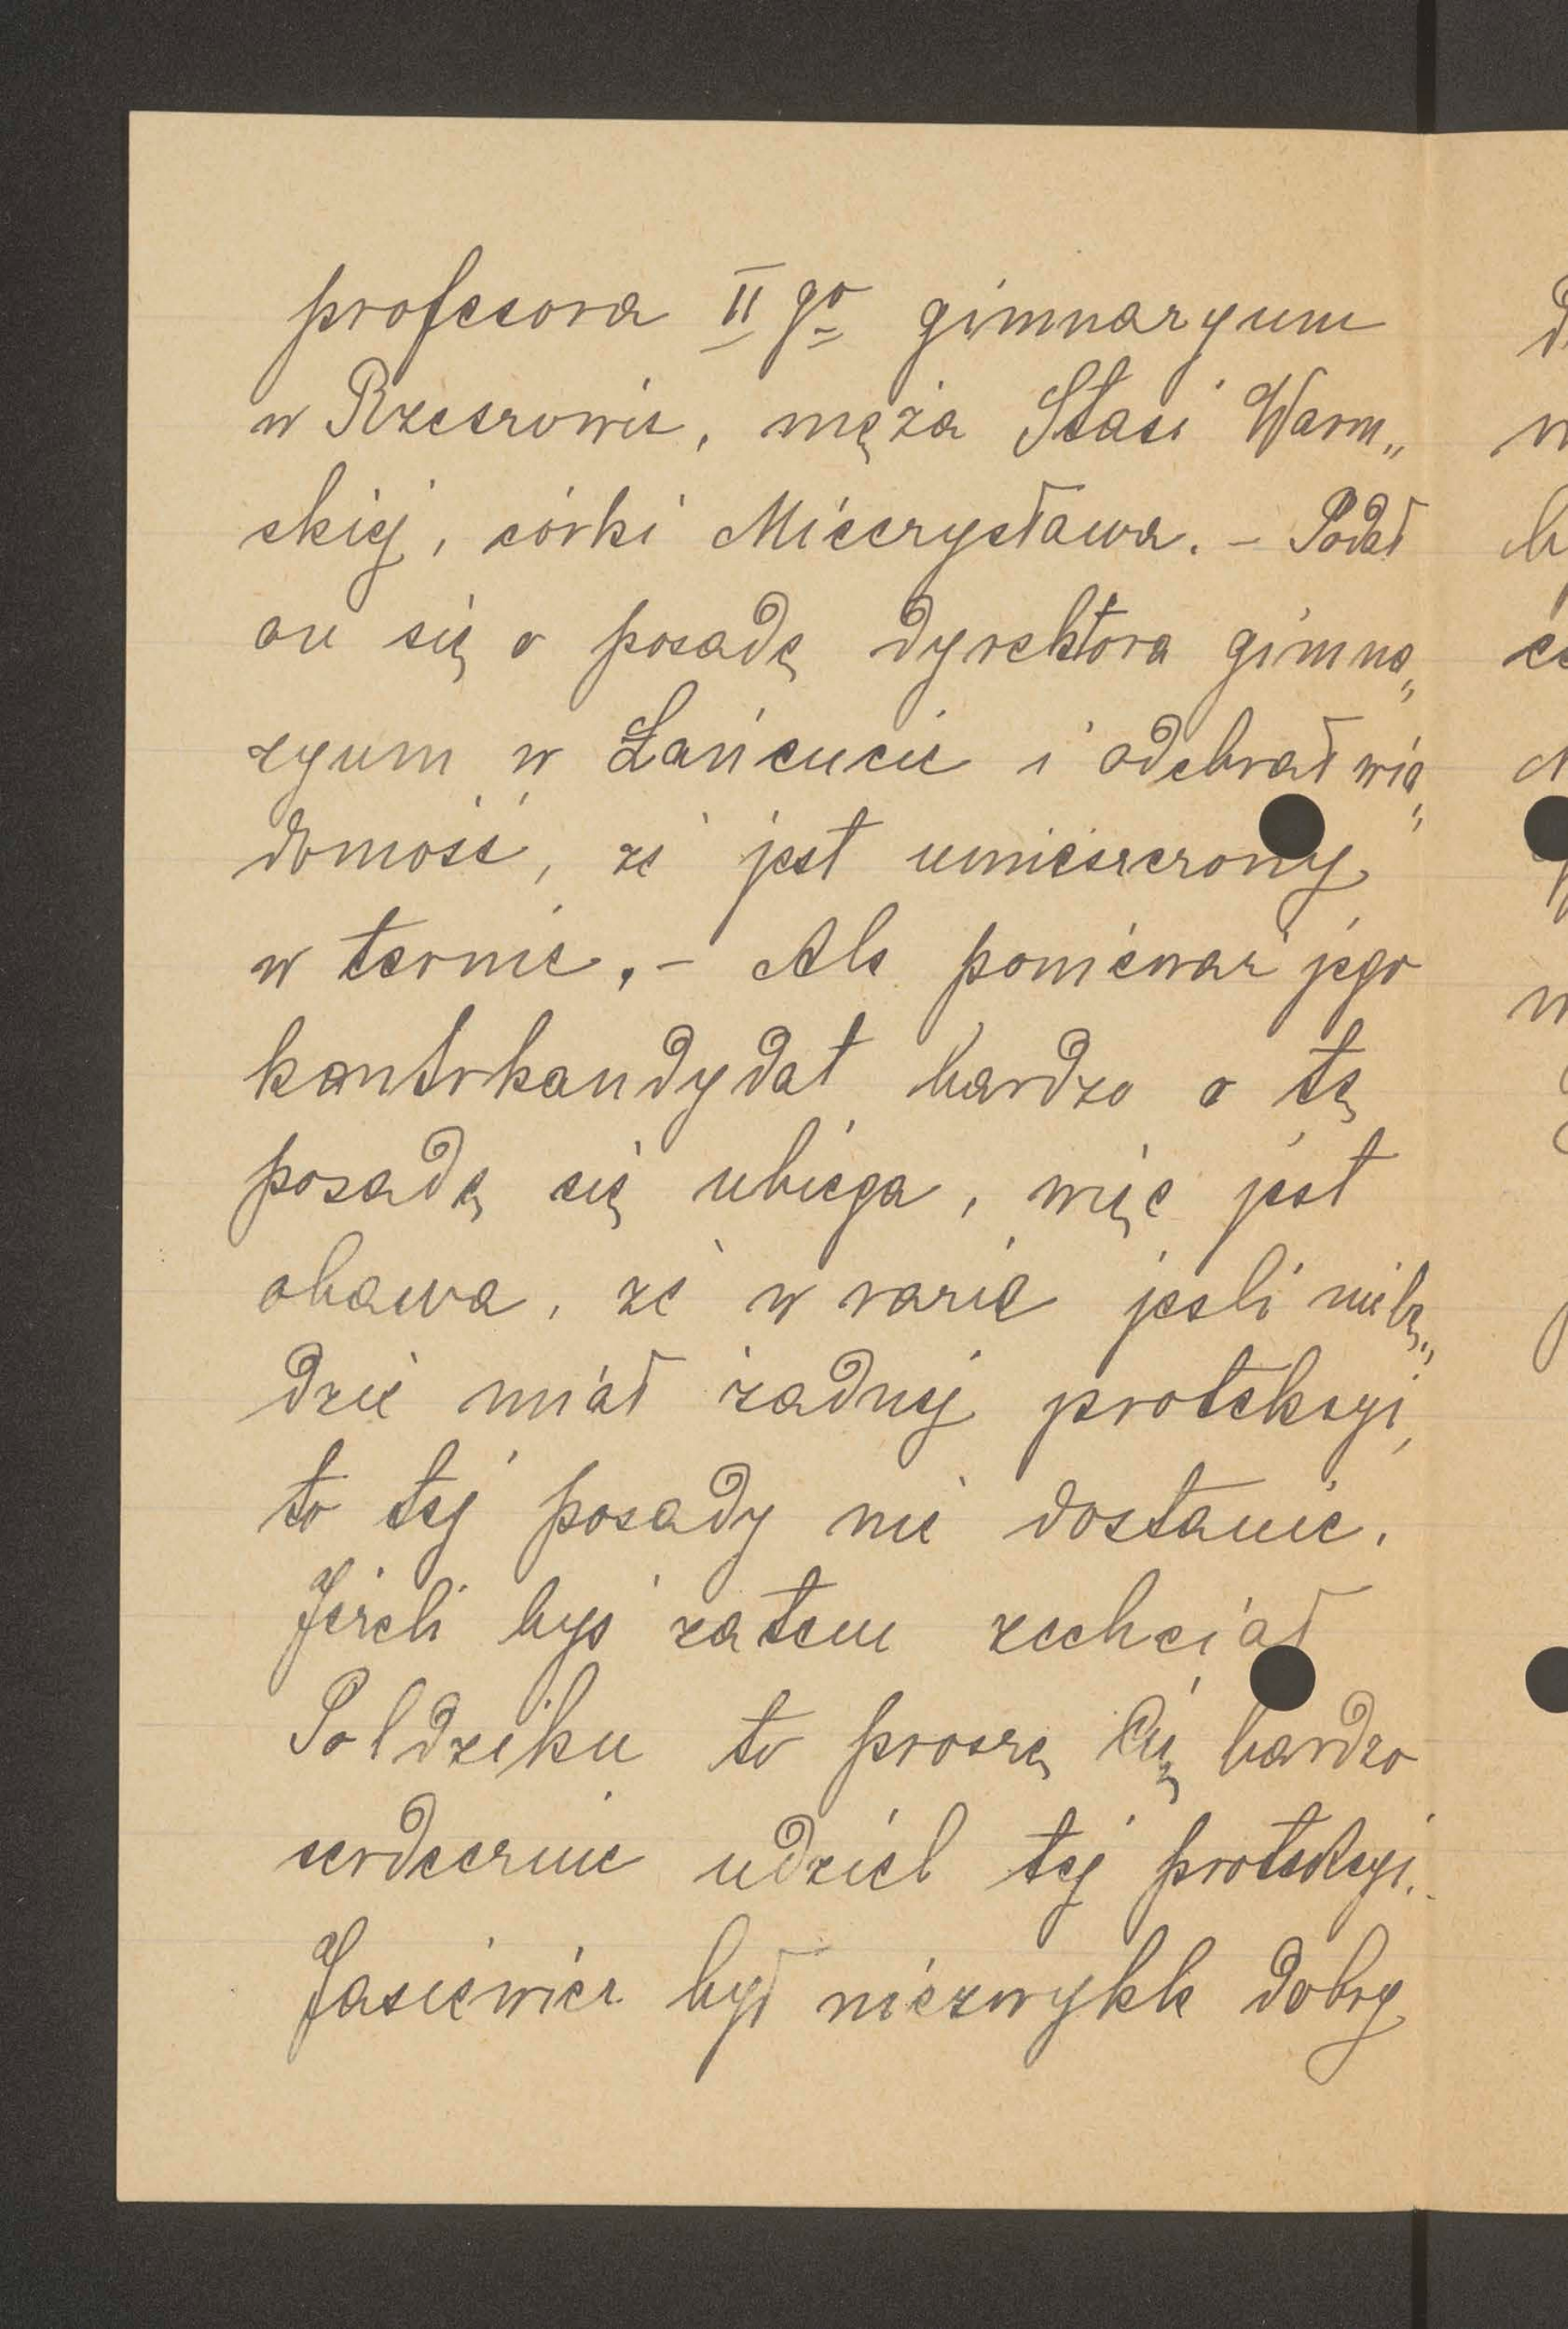 profesora II go gimnazyum
w Rzeszowie, męża Stasi Warm„
skiej, córki Mieczysława. – Podał
on się o posadę dyrektora gimna„
zyum w Łańcucie i odebrał wia„
domość, że jest umieszczony
w ternie. – Ale ponieważ jego
kontrkandydat bardzo o tę
posadę się ubiega, więc jest
obawa, że w razie jeśli nie bę„
dzie miał żadnej protekcyi,
to tej posady nie dostanie.
Jeżeli byś zatem zechciał
Poldziku to proszę Cię bardzo
serdecznie udziel tej protekcyi.
Jasiewicz był niezwykle dobry